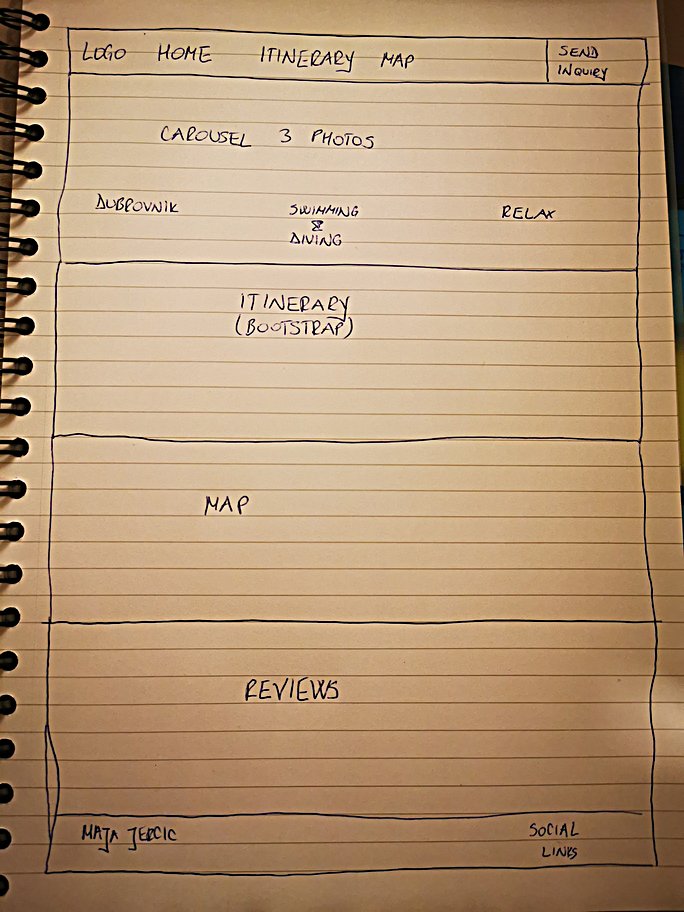 LOGO HOME ITINERARY MAP
SEND
INQUIRY
CAROUSEL 3 PHOTOS
DUBROVNIK
SWIMMING
&
DIVING
RELAX
ITINERARY
(BOOTSTRAP)
MAP
REVIEWS
MAJA JERCIC
SOCIAL
LINKS